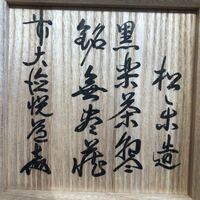 松楽造
黒楽茶碗
銘無尽蔵
前大徳悦道